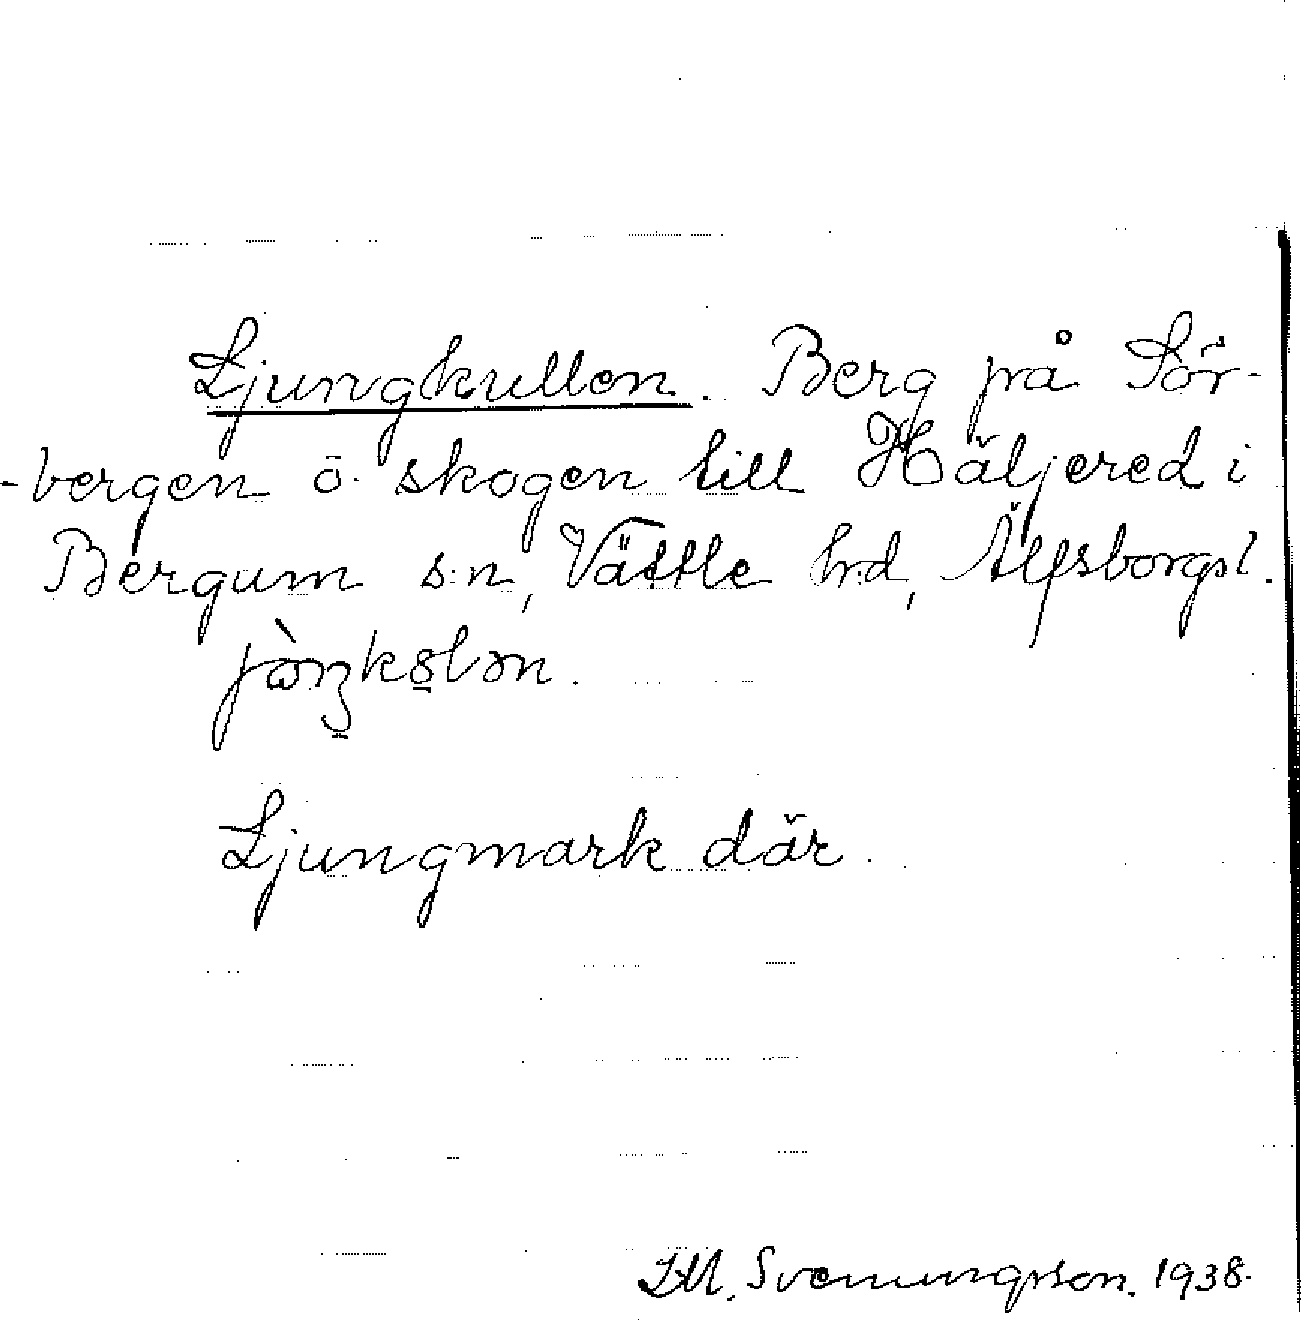 Ljungkullen. Berg på Sör-
-bergen ö. skogen till Häljered i
Bergum s:n, Vättle hrd, Älfsborgs l.
Ljungmark där.
Svenungsson. 1938.